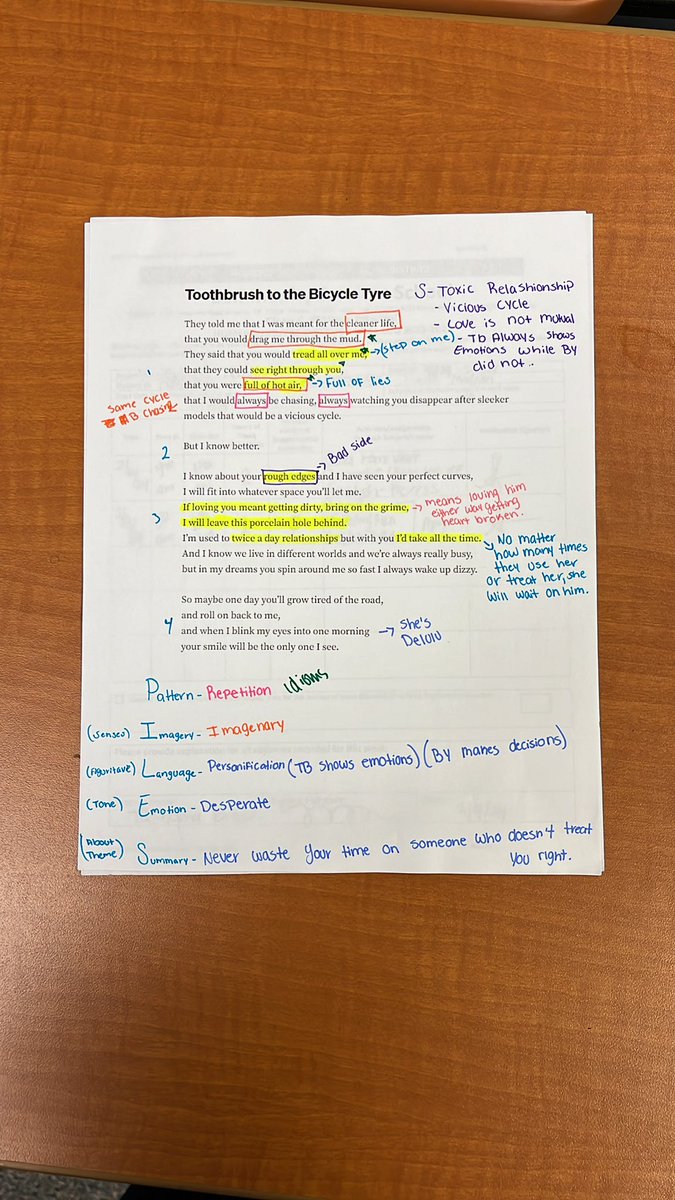 Toothbrush to the Bicycle Tyre
S- Toxic Relashionship
- Vicious Cycle
- Love is not mutual
- Tb Always shows
Emotions while By
did not..
They told me that I was meant for the cleaner life,
that you would drag me through the mud.
They said that you would tread all over me, → (step on me)
that they could see right through you,
that you were full of hot air, → Full of lies
that I would always be chasing, always watching you disappear after sleeker
models that would be a vicious cycle.
1
same cycle
B Chasing
2 But I know better.
→ Bad side
I know about your rough edges and I have seen your perfect curves,
I will fit into whatever space you'll let me.
If loving you meant getting dirty, bring on the grime, → means loving him
either way getting
heart broken.
3 I will leave this porcelain hole behind.
I'm used to twice a day relationships but with you I'd take all the time.
And I know we live in different worlds and we're always really busy,
but in my dreams you spin around me so fast I always wake up dizzy.
→ No matter
how many times
they use her
or treat her, she
will wait on him.
So maybe one day you'll grow tired of the road,
and roll on back to me,
4 and when I blink my eyes into one morning → She's
Delulu
your smile will be the only one I see.
Pattern - Repetition idioms
(senses) Imagery - Imagenary
(figuritave) Language - Personification (TB shows emotions) (By makes decisions)
(Tone) Emotion - Desperate
(About Theme) Summary - Never waste your time on someone who doesn't treat
you right.